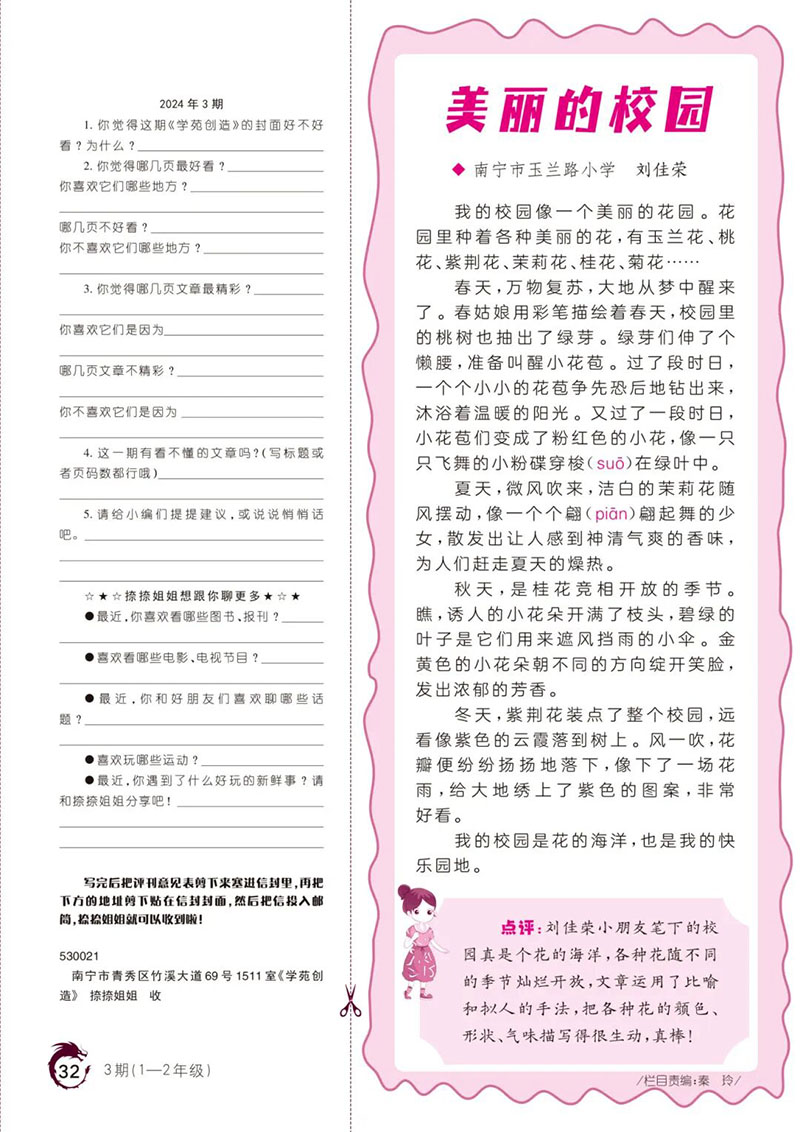 2024年3期
1. 你觉得这期《学苑创造》的封面好不好
看?为什么?
2. 你觉得哪几页最好看?
你喜欢它们哪些地方?
哪几页不好看?
你不喜欢它们哪些地方?
3. 你觉得哪几页文章最精彩?
你喜欢它们是因为
哪几页文章不精彩?
你不喜欢它们是因为
4. 这一期有看不懂的文章吗?(写标题或
者页码数都行哦)
5. 请给小编们提提建议,或说说悄悄话
吧。
☆★☆捺捺姐姐想跟你聊更多★☆★
●最近,你喜欢看哪些图书、报刊?
●喜欢看哪些电影、电视节目?
●最近,你和好朋友们喜欢聊哪些话
题?
●喜欢玩哪些运动?
●最近,你遇到了什么好玩的新鲜事?请
和捺捺姐姐分享吧!
写完后把评刊意见表剪下来塞进信封里,再把
下方的地址剪下贴在信封封面,然后把信投入邮
筒,捺捺姐姐就可以收到啦!
530021
南宁市青秀区竹溪大道69号1511室《学苑创
造》 捺捺姐姐 收
32 3期(1—2年级)
美丽的校园
◆ 南宁市玉兰路小学 刘佳荣
我的校园像一个美丽的花园。花
园里种着各种美丽的花,有玉兰花、桃
花、紫荆花、茉莉花、桂花、菊花……
春天,万物复苏,大地从梦中醒来
了。春姑娘用彩笔描绘着春天,校园里
的桃树也抽出了绿芽。绿芽们伸了个
懒腰,准备叫醒小花苞。过了段时日,
一个个小小的花苞争先恐后地钻出来,
沐浴着温暖的阳光。又过了一段时日,
小花苞们变成了粉红色的小花,像一只
只飞舞的小粉蝶穿梭(suō)在绿叶中。
夏天,微风吹来,洁白的茉莉花随
风摆动,像一个个翩(piān)翩起舞的少
女,散发出让人感到神清气爽的香味,
为人们赶走夏天的燥热。
秋天,是桂花竞相开放的季节。
瞧,诱人的小花朵开满了枝头,碧绿的
叶子是它们用来遮风挡雨的小伞。金
黄色的小花朵朝不同的方向绽开笑脸,
发出浓郁的芳香。
冬天,紫荆花装点了整个校园,远
看像紫色的云霞落到树上。风一吹,花
瓣便纷纷扬扬地落下,像下了一场花
雨,给大地绣上了紫色的图案,非常
好看。
我的校园是花的海洋,也是我的快
乐园地。
点评:刘佳荣小朋友笔下的校
园真是个花的海洋,各种花随不同
的季节灿烂开放,文章运用了比喻
和拟人的手法,把各种花的颜色、
形状、气味描写得很生动,真棒!
/栏目责编:秦 玲/